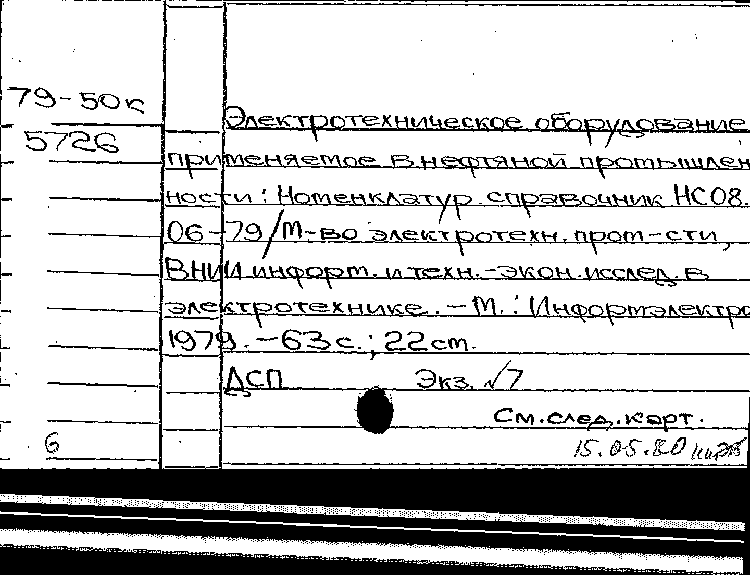 79-50к
5726
Электротехническое оборудование
применяемое в нефтяной промышлен
ности: Номенклатур. справочник НС08.
06-79/М-во электротехн. пром-сти,
ВНИИ информ. и техн.-экон. исслед. в
электротехнике. – М.: Информэлектро
1979. – 63 с.; 22 см.
ДСП Экз. √7
См. след. карт.
6 15.05.80